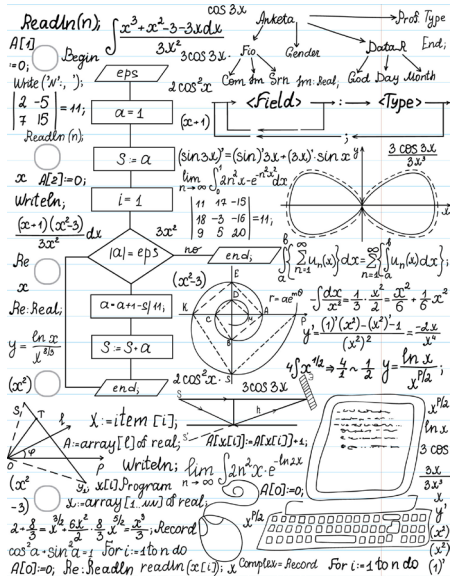 cos 3x
Readln(n);
∫ x³+x²-3-3xdx / 3x²
Anketa
Prof. Type
A[1]
:=0;
Begin
3cos3x.
Fio
Gender
DataR
End;
eps
Write('N:', ');
2cos²x
Com Im Srn
Im:Real;
God Day Month
|2 -5|
|7 15| = 11;
a=1
(x+1)
<Field> : <Type>
;
Readln(n);
S:=a
(sin3x)'=(sin)'3x+(3x)'·sinx
y
3cos3x / 3x³
x A[2]:=0;
lim n→∞ ∫ 2n²x-e^-n²x² dx
x
Writeln;
i=1
|11 17 -15|
|18 -3 -16| =11;
|9 5 20|
(x+1)(x²-3) / 3x² dx
3x²
|a|=eps
no
end;
∫ab {∑n=1∞ un(x)}dx=∑n=1∞ ∫ab un(x)dx;
Re
x
(x²-3)
E
Re:Real;
a=a+1-s/11;
K
C
D
A
P
B
S
r=ae^mθ
-∫dx/x²=1/3·x²/2=x²/6+1/6 x²
y=ln x / x^3/3
S:=S+a
y'=(1)'(x²)-(x²)'·1 / (x²)²=-2x/x⁴
(x²)
end;
2cos²x·
3cos3x
4∫x^1/2⇒4/1~1/2
y=ln x / x^P/2;
S,
T
l
O
φ
P
y,
X:=item[i];
S
h
S'
x^P/2
ln x
A:=array[l] of real;
A[x[i]]:=A[x[i]]+1;
3 cos
3x / 3x³
Writeln;
lim n→∞ ∫2n²x·e^-ln2x
A[0]:=0;
(x²
-3)
x[i].Program
x:=array[1..] of real;
x
y'
2+8/3=x^3/2+6x²/2-8/3=x³/3;
Record
x^P/2
(x³)
cos²a+sin²a=1
For i:=1 to n do
(x²)
A[0]:=0; Re:Readln readln(x[i]); x Complex=Record For i:=1 to n do (1)'